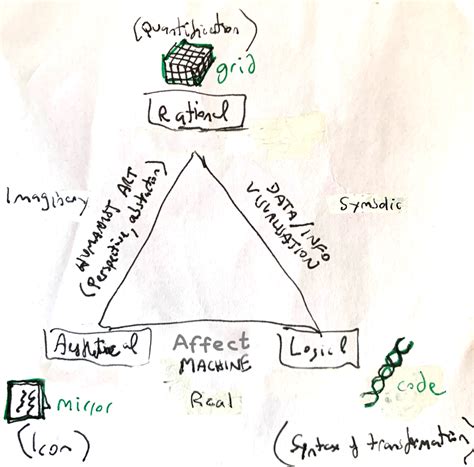 (Quantification)
grid
Rational
Imaginary
HUMANIST ART
(Perspective, abstraction)
DATA/INFO
VISUALISATION
Symbolic
Aesthetical
Affect
MACHINE
Logical
Real
mirror
(Icon)
code
(Syntax of transformation)